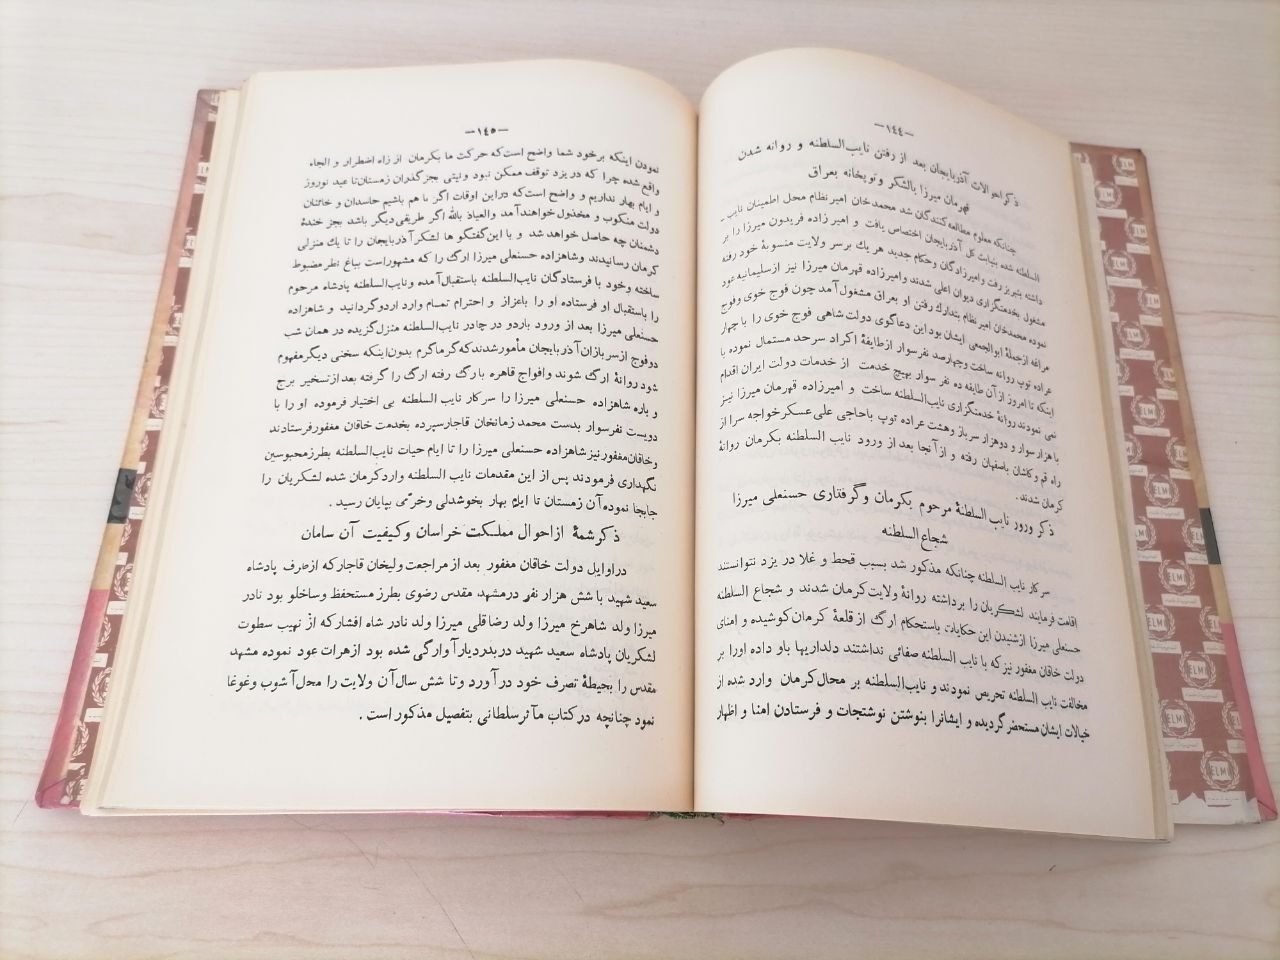 — ١٤٤ —
ذکر احوالات آذربایجان بعد از رفتن نایب‌السلطنه و روانه شدن
قهرمان میرزا بالشکر و توپخانه بعراق
چنانکه معلوم مطالعه‌کنندگان شد محمدخان امیر نظام محل اطمینان نایب ـ
السلطنه شده بنیابت کل آذربایجان اختصاص یافت و امیر زاده فریدون میرزا را بر
داشته بتبریز رفت و امیرزادگان وحکام جدید هریك برسر ولایت منسوبهٔ خود رفته
مشغول بخدمتگزاری دیوان اعلی شدند وامیرزاده قهرمان میرزا نیز ازسلیمانیه عود
نموده محمدخان امیر نظام بتدارك رفتن او بعراق مشغول آمد چون فوج خوی وفوج
مراغه ازجملهٔ ابوالجمعی ایشان بود این دعاگوی دولت شاهی فوج خوی را با چهار
عراده توپ روانه ساخت وچهارصد نفرسوار ازطایفهٔ اکراد سرحد مستمال نموده با
اینکه تا امروز از آن طایفه ده نفر سوار بهیچ خدمت از خدمات دولت ایران اقدام
نمی نمودند روانهٔ خدمتگزاری نایب‌السلطنه ساخت و امیرزاده قهرمان میرزا نیز
با هزارسوار و دوهزار سرباز وهشت عراده توپ باحاجی علی‌عسکرخواجه سرا از
راه قم و کاشان باصفهان رفته و از آنجا بعد از ورود نایب السلطنه بکرمان روانهٔ
کرمان شدند .
ذکر ورود نایب السلطنهٔ مرحوم بکرمان وگرفتاری حسنعلی میرزا
شجاع السلطنه
سرکار نایب السلطنه چنانکه مذکور شد بسبب قحط و غلا در یزد نتوانستند
اقامت فرمایند لشکریان را برداشته روانهٔ ولایت کرمان شدند و شجاع السلطنه
حسنعلی میرزا ازشنیدن این حکایات باستحکام ارگ از قلعهٔ کرمان کوشیده و امنای
دولت خاقان مغفور نیز که با نایب السلطنه صفائی نداشتند دلداریها باو داده اورا بر
مخالفت نایب السلطنه تحریص نمودند و نایب‌السلطنه بر محال کرمان وارد شده از
خیالات ایشان مستحضر گردیده و ایشانرا بنوشتن نوشتجات و فرستادن امنا و اظهار
— ١٤٥ —
نمودن اینکه برخود شما واضح است‌که حرکت ما بکرمان از راه اضطرار و الجاء
واقع شده چرا که در یزد توقف ممکن نبود ونیتی بجزگذران زمستان تا عید نوروز
و ایام بهار نداریم و واضح است‌که دراین اوقات اگر با هم باشیم حاسدان و خائنان
دولت منکوب و مخذول خواهند آمد والعیاذ بالله اگر طریقی دیگر باشد بجز خندهٔ
دشمنان چه حاصل خواهد شد و با این‌گفتگو ها لشکرآذربایجان را تا یك منزلی
کرمان رسانیدند وشاهزاده حسنعلی میرزا ارگ را که مشهوراست بباغ نظر مضبوط
ساخته وخود با فرستادگان نایب‌السلطنه باستقبال آمده ونایب‌السلطنه پادشاه مرحوم
را باستقبال او فرستاده او را باعزاز و احترام تمام وارد اردوگردانید و شاهزاده
حسنعلی میرزا بعد از ورود باردو در چادر نایب السلطنه منزل گزیده در همان شب
دوفوج ازسربازان آذربایجان مأمورشدند که گرماگرم بدون اینکه سخنی دیگر مفهوم
شود روانهٔ ارگ شوند وافواج قاهره بارگ رفته ارگ را گرفته بعد ازتسخیر برج
و باره شاهزاده حسنعلی میرزا را سرکار نایب السلطنه بی اختیار فرموده او را با
دویست نفرسوار بدست محمد زمانخان قاجارسپرده بخدمت خاقان مغفورفرستادند
وخاقان مغفور نیز شاهزاده حسنعلی میرزا را تا ایام حیات نایب‌السلطنه بطرزمحبوسین
نگهداری فرمودند پس از این مقدمات نایب السلطنه وارد کرمان شده لشکریان را
جابجا نموده آن زمستان تا ایام بهار بخوشدلی وخرمی بپایان رسید .
ذکرشمهٔ ازاحوال مملکت خراسان وکیفیت آن سامان
دراوایل دولت خاقان مغفور بعد از مراجعت ولیخان قاجارکه ازطرف پادشاه
سعید شهید با شش هزار نفر درمشهد مقدس رضوی بطرز مستحفظ وساخلو بود نادر
میرزا ولد شاهرخ میرزا ولد رضاقلی میرزا ولد نادر شاه افشارکه از نهیب سطوت
لشکریان پادشاه سعید شهید دربدر دیارآوارگی شده بود ازهرات عود نموده مشهد
مقدس را بحیطهٔ تصرف خود درآورد وتا شش سال آن ولایت را محل آشوب وغوغا
نمود چنانچه درکتاب مآثرسلطانی بتفصیل مذکور است .
ELMI